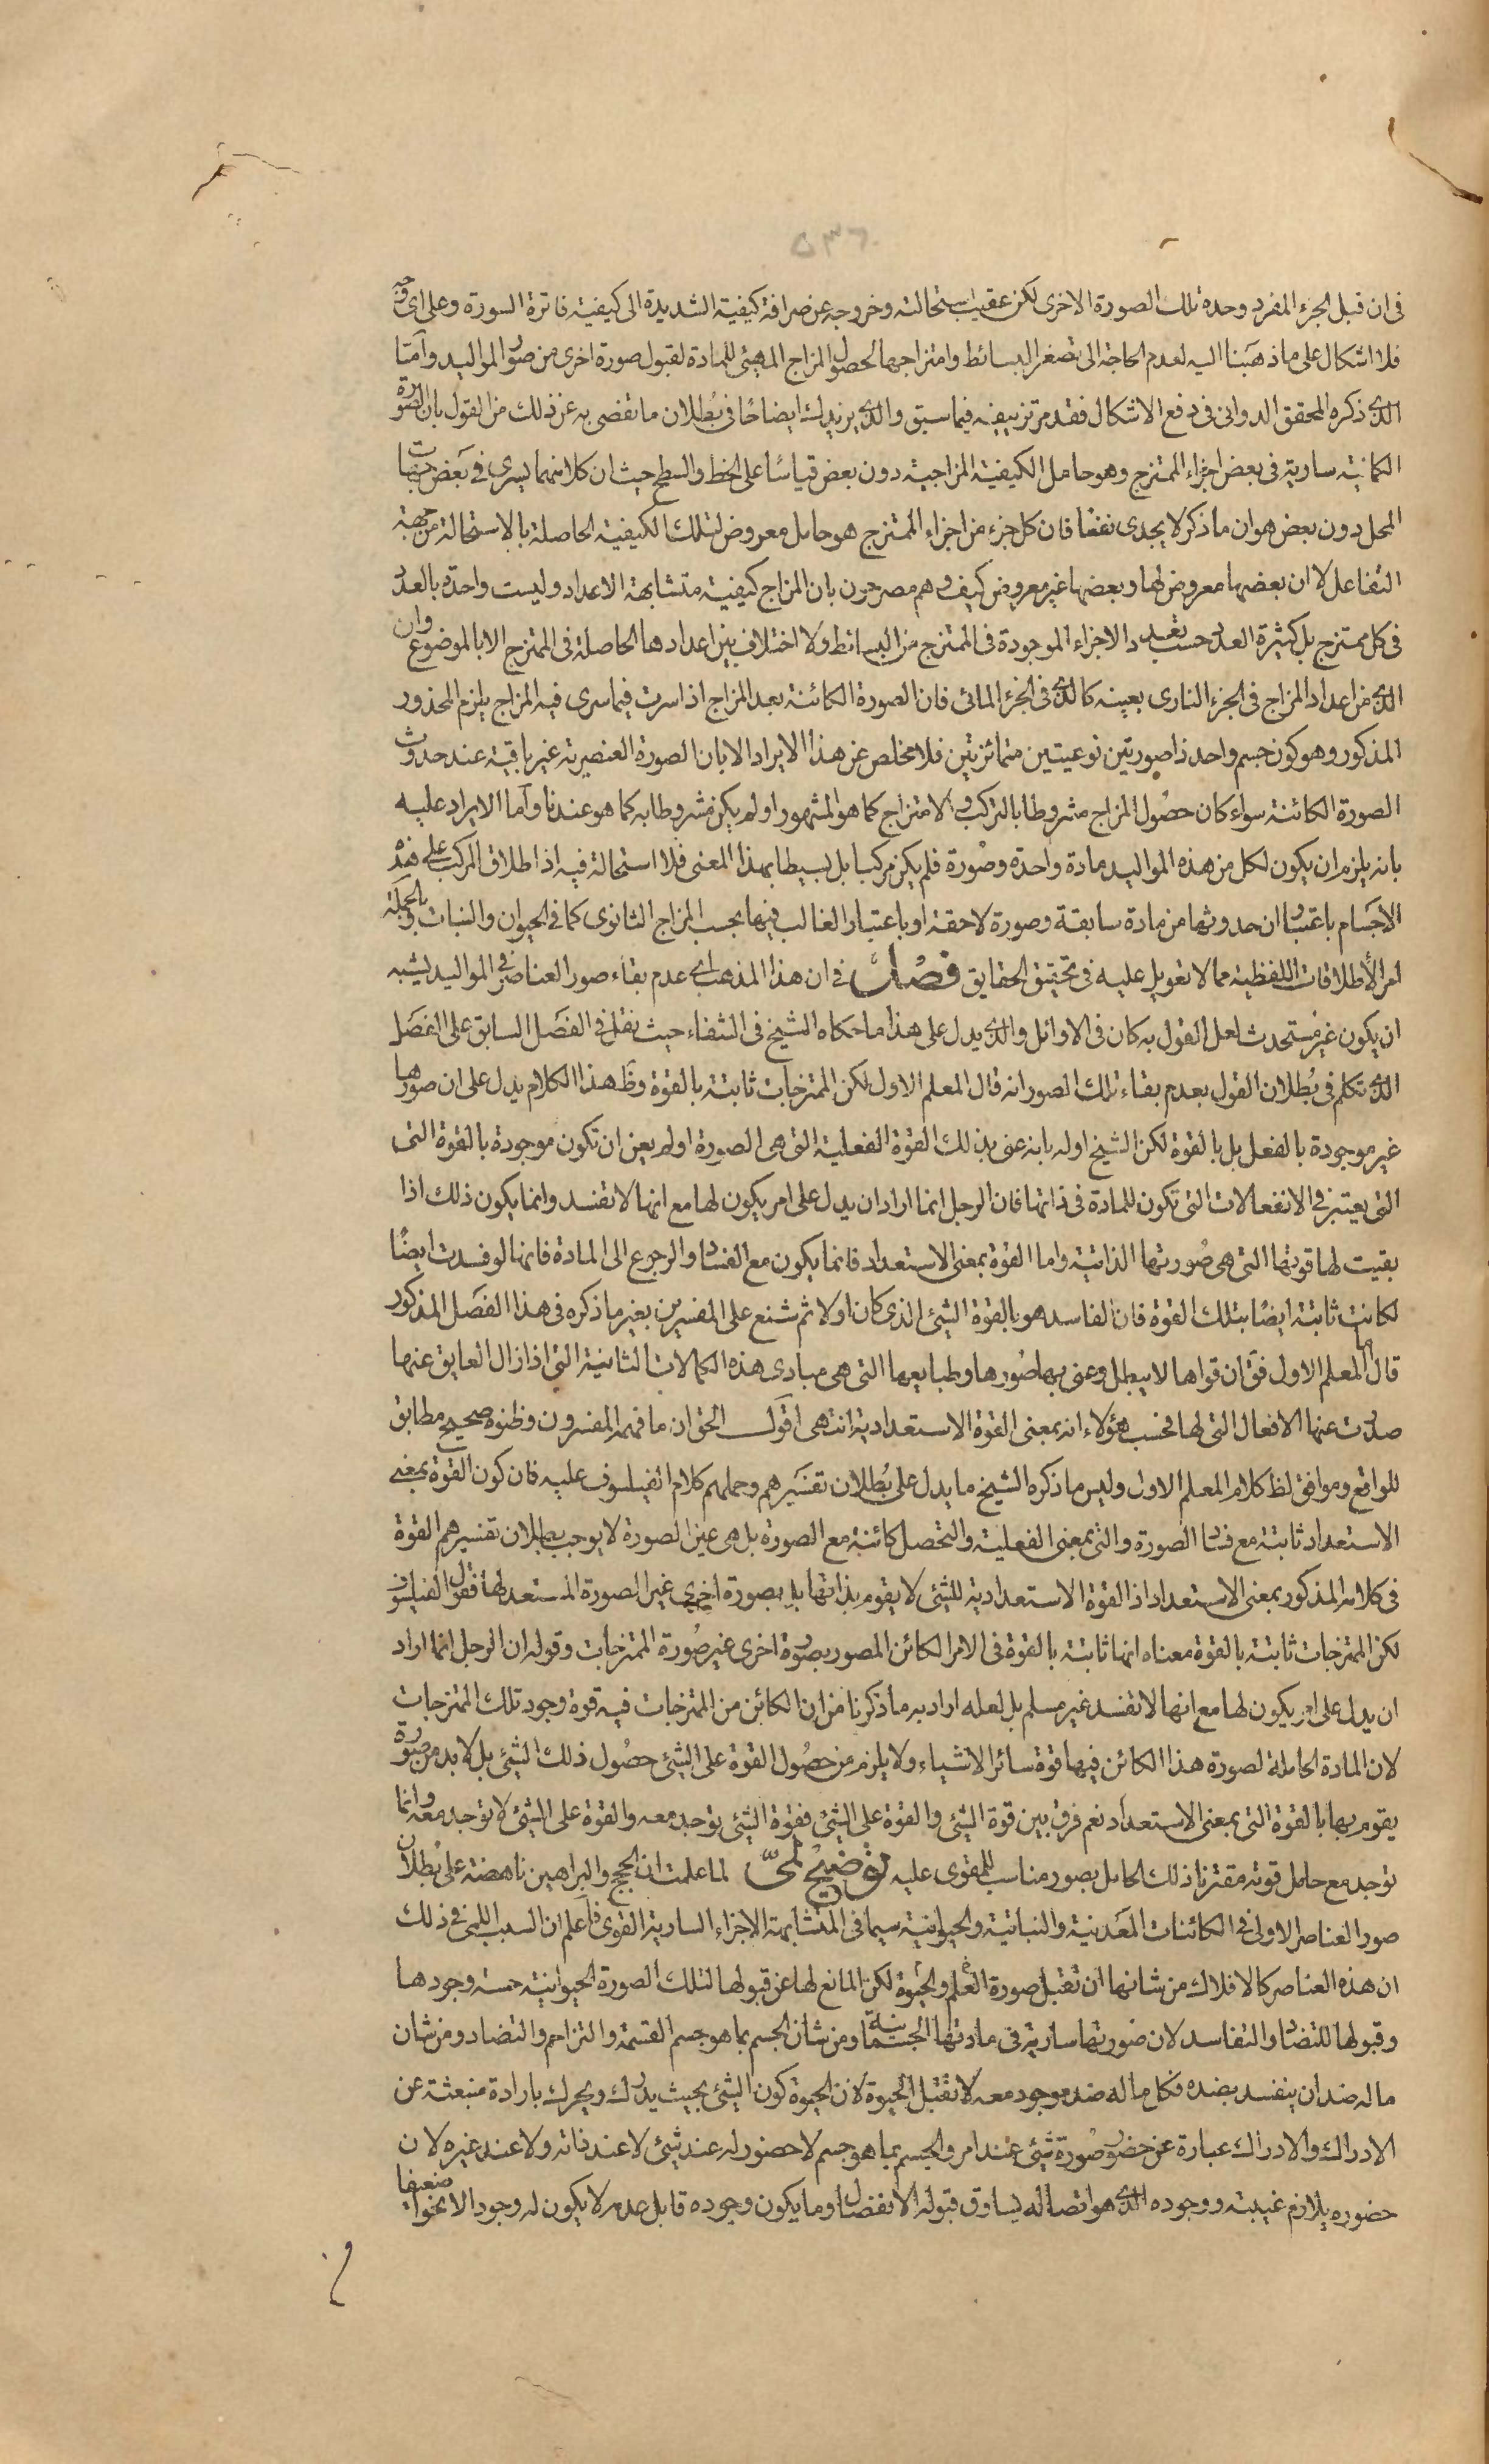 ٥٣٦
فى ان قبل الجزء المفرد وحده تلك الصورة الاخرى لكن عقيب استحالته وخروجه عن صرافة كيفية الشديدة الى كيفية فاترة السورة وعلى اى وجه
فلا اشكال على ما ذهبنا اليه لعدم الحاجة الى تصغر البسائط وامتزاجها لحصول المزاج المهيئ للمادة لقبول صورة اخرى من صور المواليد وامّا
الذى ذكره المحقق الدوانى فى دفع الاشكال فقد مر تزييفه فيما سبق والذى يزيدك ايضاحًا فى بُطلان ما تفصى به عن ذلك من القول بان الصورة
الكائنه سارية فى بعض اجزاء الممتزج وهو حامل الكيفية المزاجية دون بعض قياسًا على الخط والسطح حيث ان كلا منهما يسرى فى بعض جهات
المحل دون بعض هو ان ما ذكر لا يجدى نفعًا فان كل جزء من اجزاء الممتزج هو حامل معروض لتلك الكيفية الحاصلة بالاستحالة من جهة
التفاعل لا ان بعضها معروض لها وبعضها غير معروض كيف وهم مصرحون بان المزاج كيفية متشابهة الاعداد وليست واحدة بالعدد
فى كل ممتزج بل كثيرة العدد حسب تعدد الاجزاء الموجودة فى الممتزج من البسائط ولا اختلاف بين اعدادها الحاصلة فى الممتزج الا بالموضوع وان
الذى من اعداد المزاج فى الجزء النارى بعينه كالذى فى الجزء المائى فان الصورة الكائنة بعد المزاج اذا سرت فيما سرى فيه المزاج يلزم المحذور
المذكور وهو كون جسم واحد ذا صورتين نوعيتين متمائزتين فلا مخلص عن هذا الايراد الا بان الصورة العنصرية غير باقية عند حدوث
الصورة الكائنة سواء كان حصُول المزاج مشروطا بالتركب والامتزاج كما هو المشهور او لم يكن مشروطا به كما هو عندنا وأما الايراد عليه
بانه يلزم ان يكون لكل من هذه المواليد مادة واحدة وصُورة فلم يكن مركبا بل بسيطا بهذا المعنى فلا استحالة فيه اذ اطلاق المركب على هذه
الاجسَام باعتبار ان حدوثها من مادة سابقة وصورة لاحقة او باعتبار الغالب فيها بحسب المزاج الثانوى كما فى الحيوان والنبات وبالجملة
امر الأطلاقات اللفظية مما لا تعويل عليه فى تحقيق الحقايق فصْل فى ان هذا المذهب اى عدم بقاء صور العناصر فى المواليد يشبه
ان يكون غير مُستحدث لعل القول به كان فى الاوائل والذى يدل على هذا ما حكاه الشيخ فى الشفاء حيث نقل فى الفصَل السابق على الفصَل
الذى تكلم فى بُطلان القول بعدم بقاء تلك الصور انه قال المعلم الاول لكن الممتزجات ثابتة بالقوة وظَ هذا الكلام يدل على ان صورها
غير موجودة بالفعل بل بالقوة لكن الشيخ اوله بانه عنى بذلك القوة الفعلية التى هى الصورة اولم يعن ان تكون موجودة بالقوة التى
التى يعتبر فى الانفعالات التى تكون للمادة فى ذاتها فان الرجل انما اراد ان يدل على امر يكون لها مع انها لا تفسد وانما يكون ذلك اذا
بقيت لها قوتها التى هى صُورتها الذاتية واما القوة بمعنى الاستعداد فانما يكون مع الفساد والرجوع الى المادة فانها لو فسدت ايضًا
لكانت ثابتة ايضًا بتلك القوة فان الفاسد هو بالقوة الشيئ الذى كان اولا ثم شنع على المفسرين بغير ما ذكره فى هذا الفصَل المذكور
قال المعلم الاول فقَ ان قواها لا يبطل وعنى بها صُورها وطبايعها التى هى مبادى هذه الكمالات الثانية التى اذا زال العايق عنها
صدرت عنها الافعال التى لها فحسب هؤلاء انه بمعنى القوة الاستعدادية انتهى اقول الحق ان ما فهمه المفسرون وظنوه صحيح مطابق
للواقع وموافق لظ كلام المعلم الاول وليس ما ذكره الشيخ ما يدل على بُطلان تفسَيرهم وحملهم كلام الفيلسوف عليه فان كون القوة بمعنى
الاستعداد ثابتة مع فساد الصورة والتى بمعنى الفعلية والتحصل كائنة مع الصورة بل هى عين الصورة لا يوجب بطلان تفسيرهم القوة
فى كلامه المذكور بمعنى الاستعداد اذ القوة الاستعدادية للشئ لا يقوم بذاتها بل بصورة اخرى غير الصورة المستعد لها فقول الفيلسوف
لكن الممتزجات ثابتة بالقوة معناه انها ثابتة بالقوة فى الامر الكائن المصور بصورة اخرى غير صُورة الممتزجات وقوله ان الرجل انما اراد
ان يدل على امر يكون لها مع انها لا تفسد غير مسلم بل لعله اراد به ما ذكرنا من ان الكائن من الممتزجات فيه قوة وجود تلك الممتزجات
لان المادة الحاملة لصورة هذا الكائن فيها قوة سائر الاشياء ولا يلزم من حصُول القوة على الشئ حصُول ذلك الشئ بل لابد من صورة
يقوم بها بالقوة التى بمعنى الاستعداد نعم فرق بين قوة الشئ والقوة على الشئ فقوة الشئ توجد معه والقوة على الشئ لا توجد معه وانما
توجد مع حامل قوته مقترنا ذلك الحامل بصور مناسب للمقوى عليه توضيح لمّى لما علمت ان الحجج والبراهين ناهضة على بُطلان
صور العناصر الاولى فى الكائنات المعَدنية والنباتية والحيوانية سيما فى المتشابهة الاجزاء السارية القوى فاعلم ان السبب اللمى فى ذلك
ان هذه العناصر كالافلاك من شانها ان تقبل صورة العلم والحيوة لكن المانع لها عن قبولها لتلك الصورة الحيوانية خسة وجودها
وقبولها للتضاد والتفاسد لان صورتها سارية فى مادتها الجسمانية ومن شان الجسم بما هو جسم القسمة والتزاحم والتضاد ومن شان
ماله ضد ان ينفسد بضده فكل ما له ضد موجود معه لا تقبل الحيوة لان الحيوة كون الشئ بحيث يدرك ويحرك بارادة منبعثة عن
الادراك والادراك عبارة عن حضور صُورة شئ عند امر والجسم بما هو جسم لا حضور له عند شئ لا عند ذاته ولا عند غيره لان
حضوره يلازم غيبته ووجوده الذى هو اتصاله يساوق قبوله الانفصال وما يكون وجوده قابل عدمه لا يكون له وجود الا نحوا ضعيفا